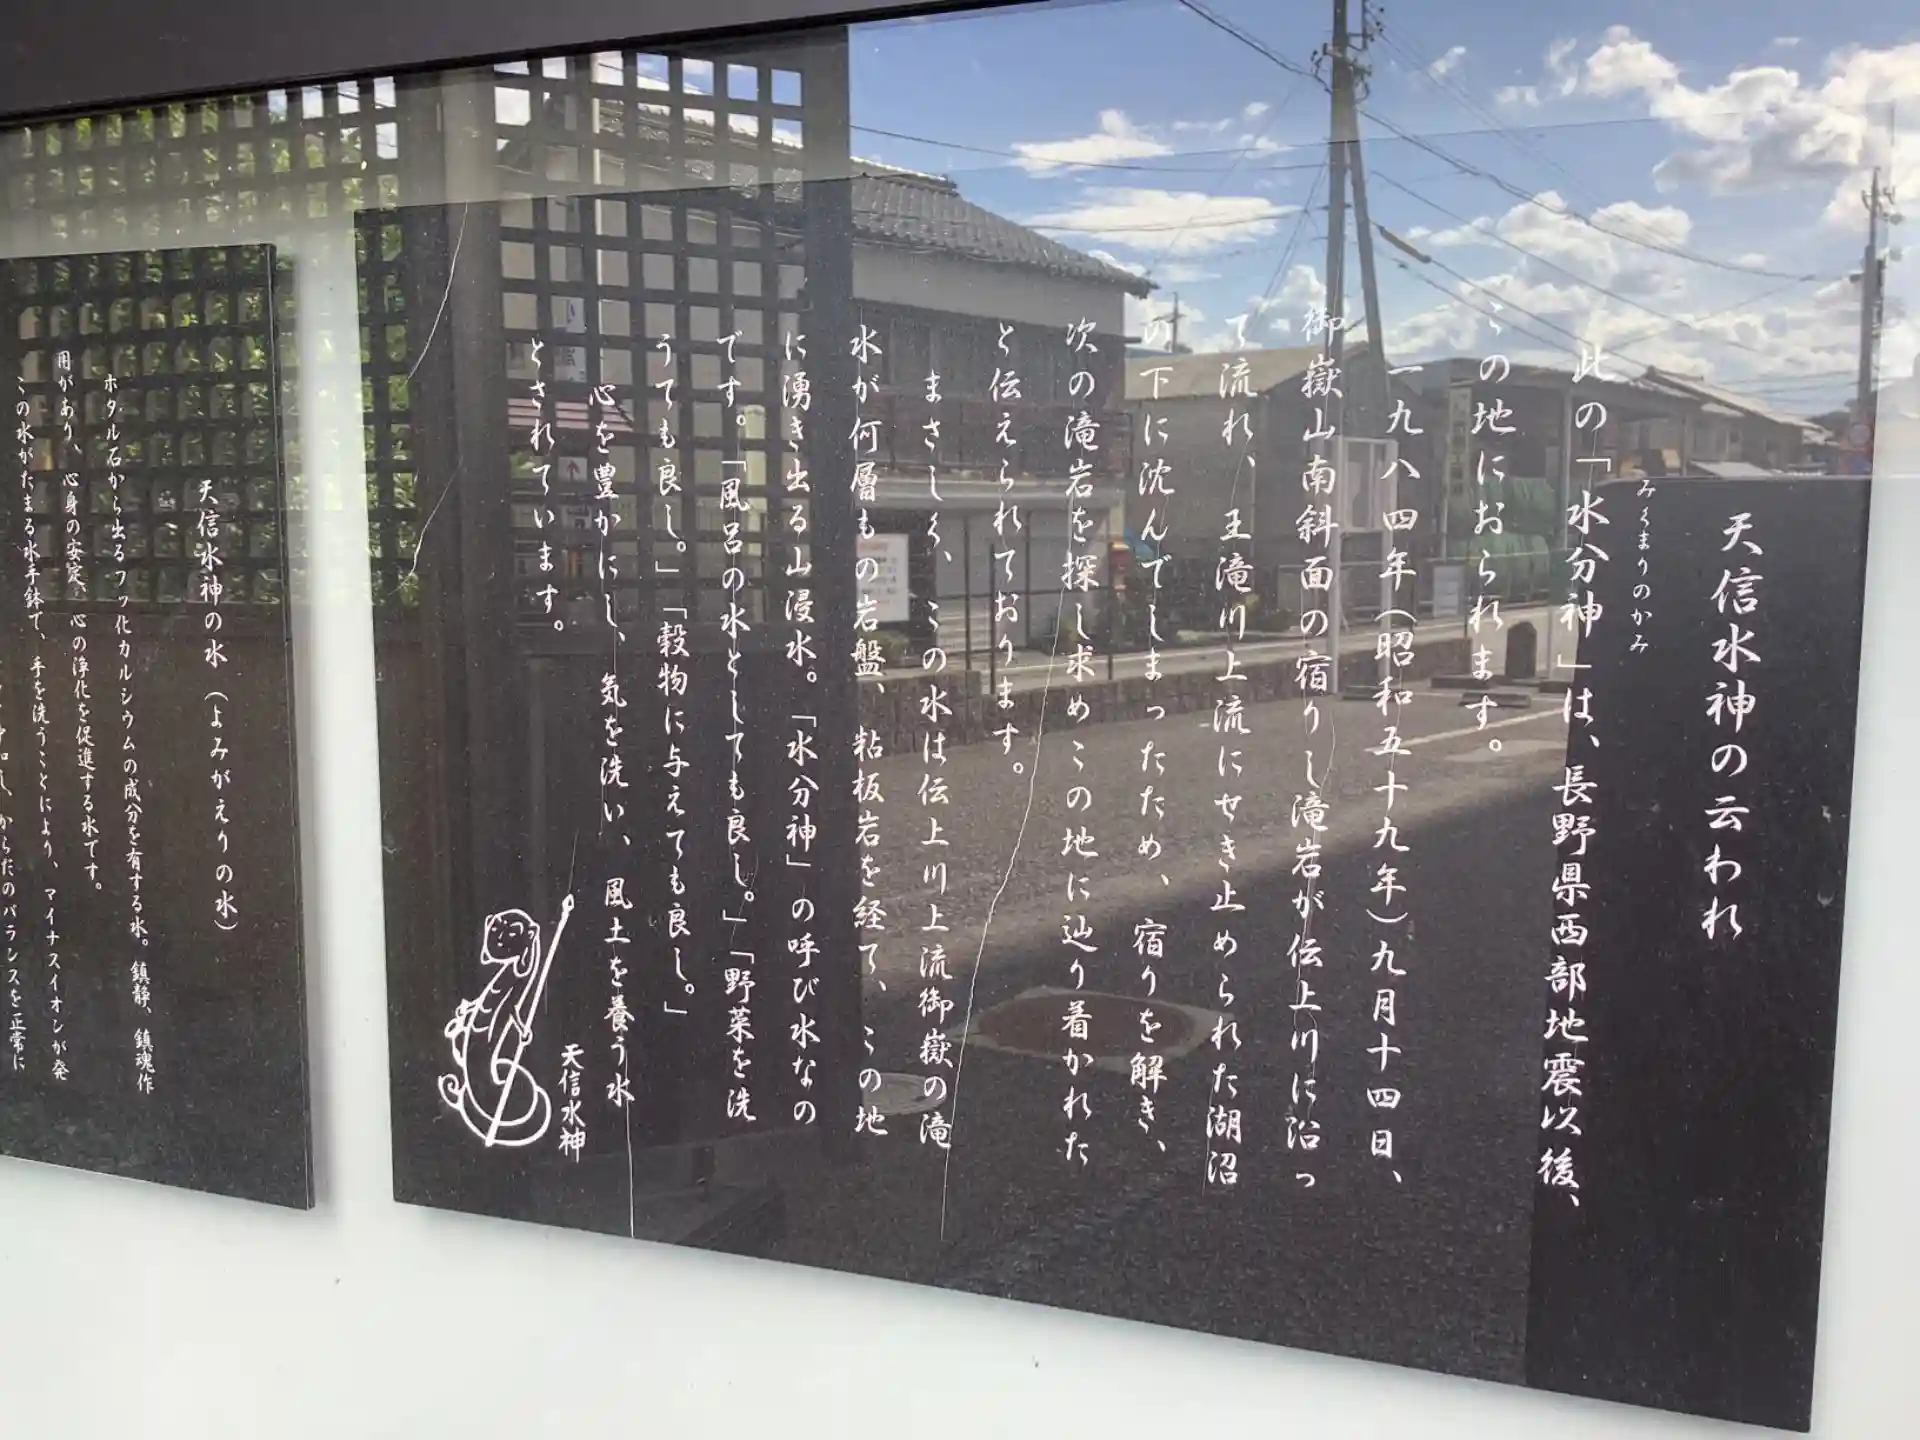 天信水神の云われ
みくまりのかみ
此の「水分神」は、長野県西部地震以後、
この地におられます。
一九八四年(昭和五十九年)九月十四日、
御嶽山南斜面の宿りし滝岩が伝上川に沿っ
て流れ、王滝川上流にせき止められた湖沼
の下に沈んでしまったため、宿りを解き、
次の滝岩を探し求めこの地に辿り着かれた
と伝えられております。
まさしく、この水は伝上川上流御嶽の滝
水が何層もの岩盤、粘板岩を経て、この地
に湧き出る山浸水。「水分神」の呼び水なの
です。「風呂の水としても良し。」「野菜を洗
うても良し。」「穀物に与えても良し。」
心を豊かにし、気を洗い、風土を養う水
とされています。
天信水神
天信水神の水(よみがえりの水)
ホタル石から出るフッ化カルシウムの成分を有する水。鎮静、鎮魂作
用があり、心身の安定、心の浄化を促進する水です。
この水がたまる水手鉢で、手を洗うことにより、マイナスイオンが発
からだのバランスを正常に